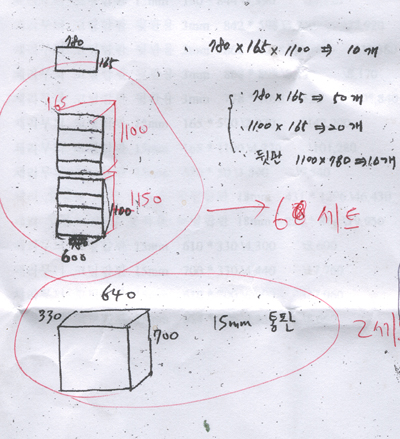 780
165
780×165×1100 ⇒ 10개
780×165 ⇒ 50개
1100×165 ⇒ 20개
뒷판 1100×780 ⇒ 10개
165
1100
1150
1100
600
→ 6 시트
640
330
700
15mm 통판